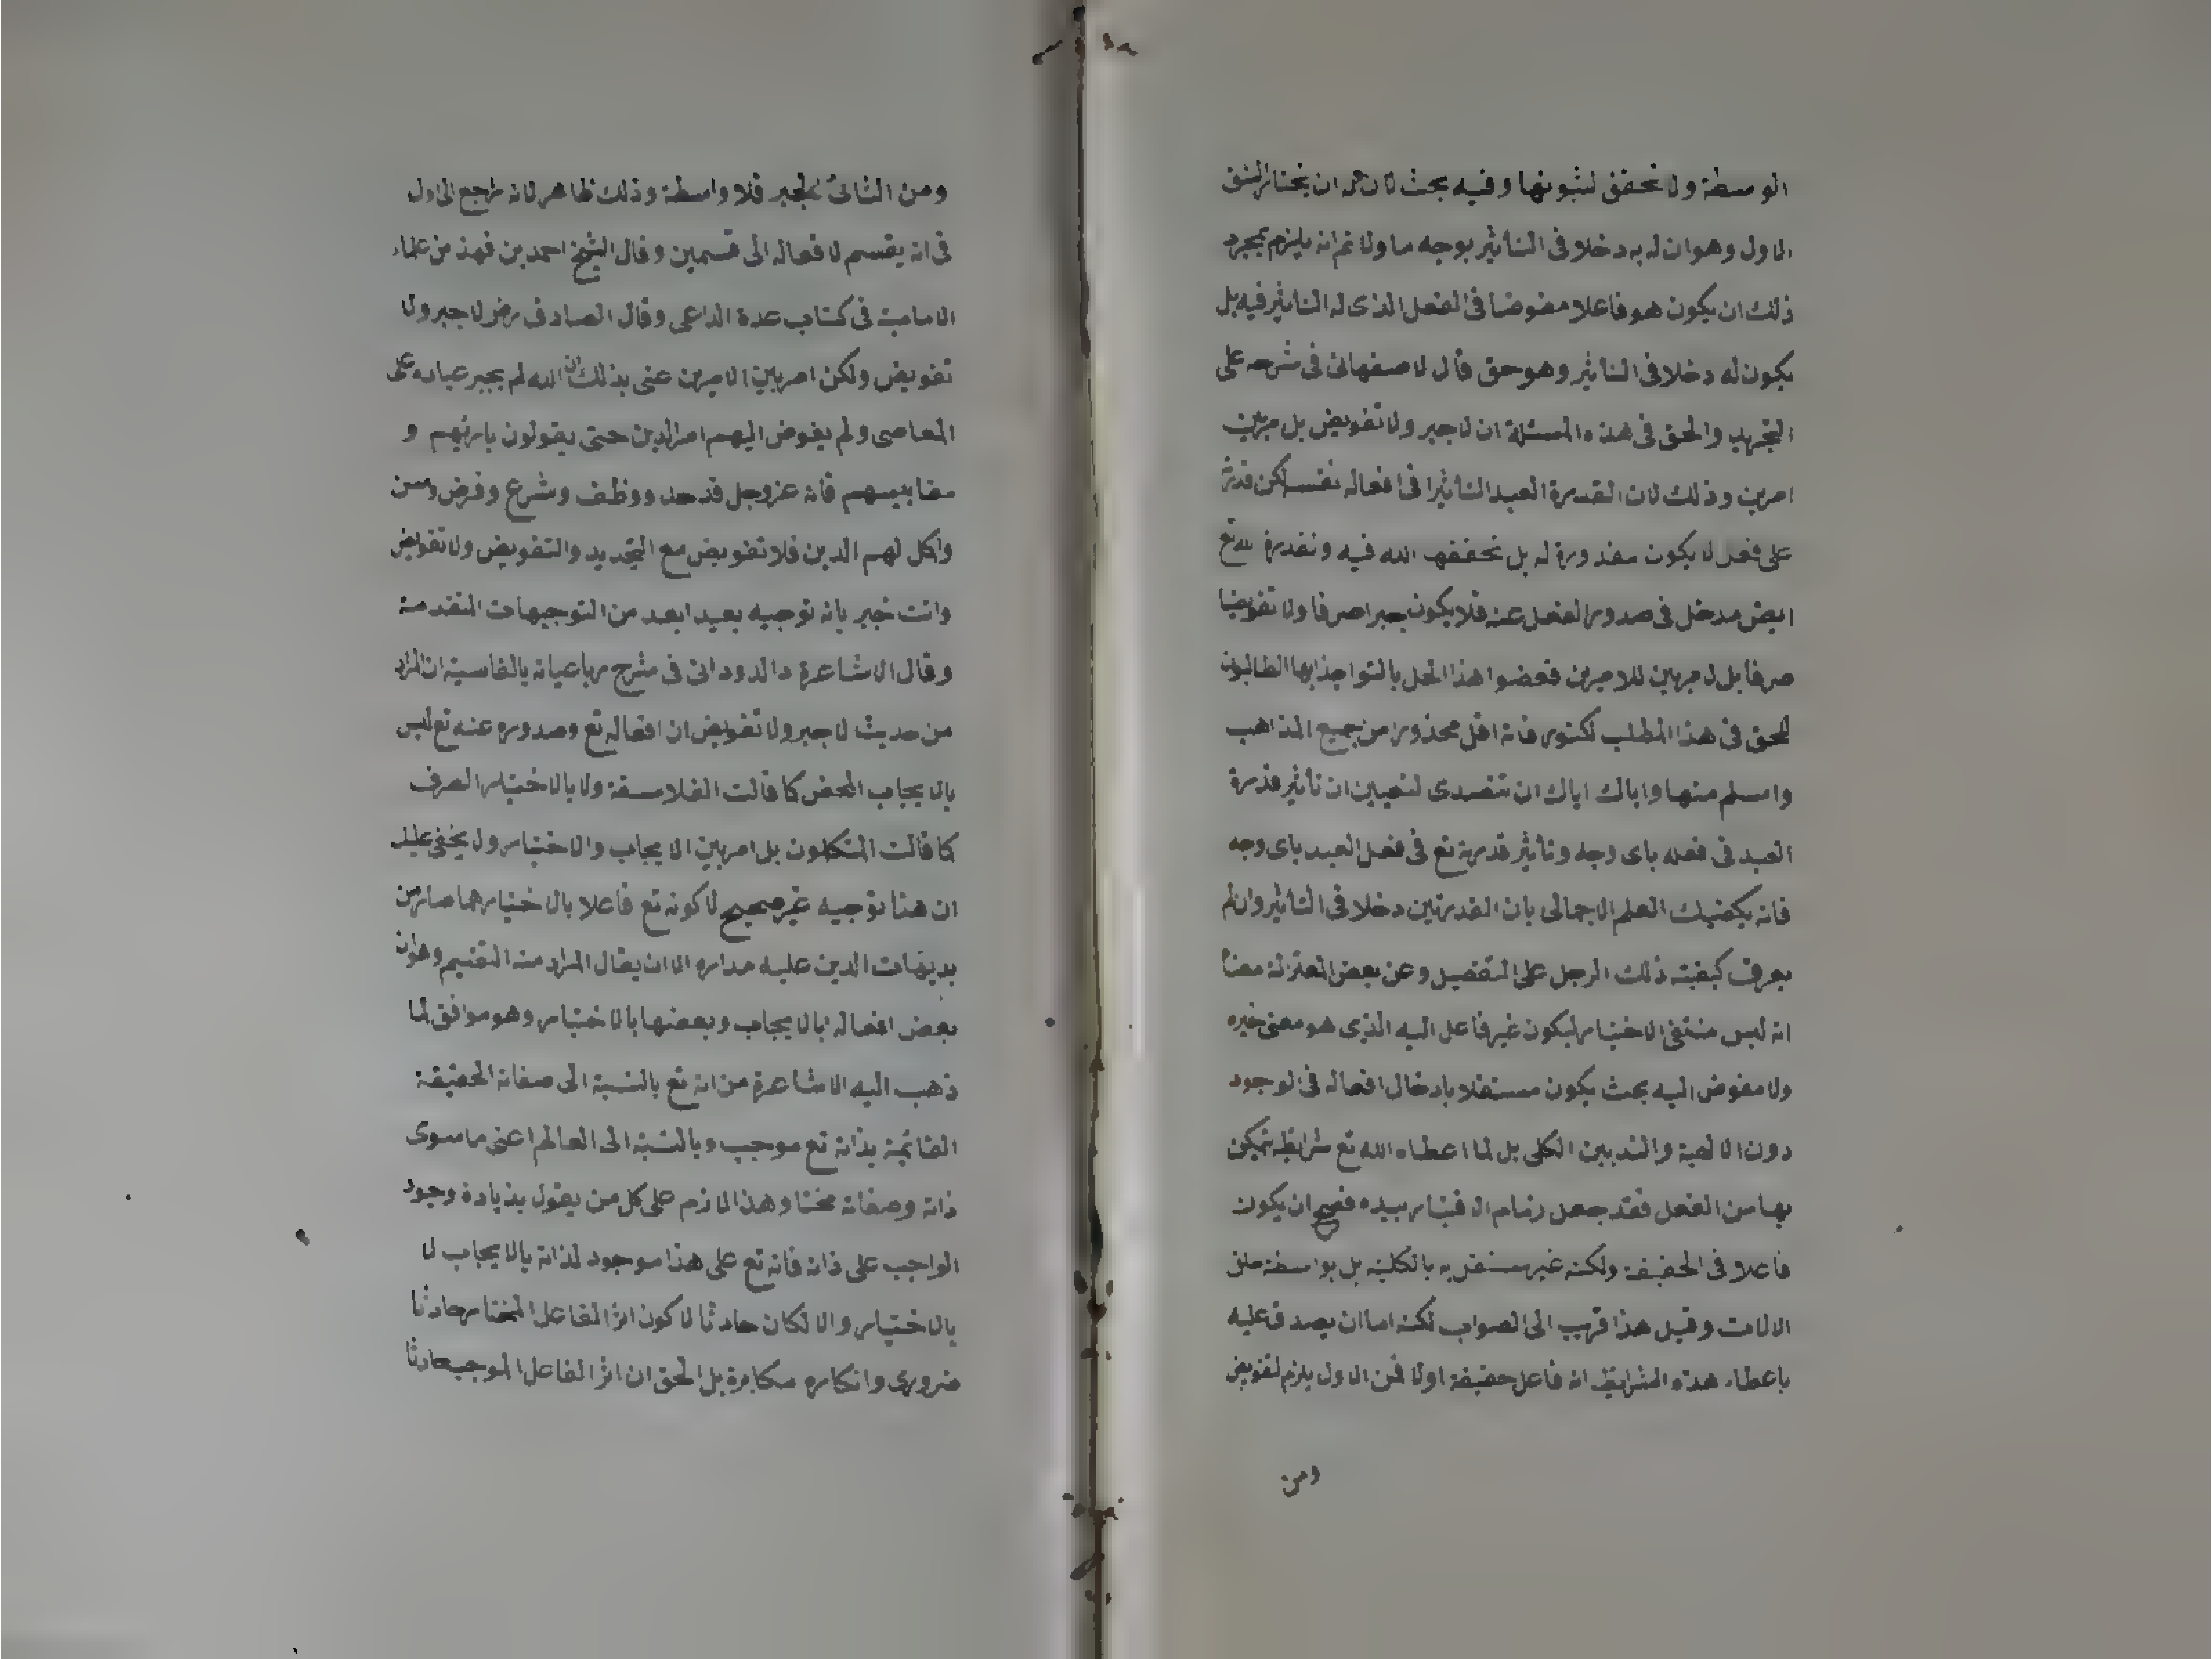 الوسطة ولا تحقق لثبوتها وفيه بحث لان له ان يختار الشق
الاول وهو ان له به دخلا فى التأثير بوجه ما ولا نم انه يلزم بمجرد
ذلك ان يكون هو فاعلا مفوضا فى الفعل الذى له التأثير فيه بل
يكون له دخلا فى التأثير وهو حق قال لاصفهانى فى شرحه على
التجريد والحق فى هذه المسئلة ان لا جبر ولا تفويض بل مربين
امرين وذلك لان القدرة العبد التأثيرا فى افعاله نفسه لكن قدرته
على فعل لا يكون مقدورة له بل تحققها الله فيه ونقدرة لله تع
ايض مدخل فى صدور الفعل عنه فلا يكون جبرا صرفا ولا تفويضا
صرفا بل لا مربين للامرين فعضوا هذا الحل بالنواجذ ايها الطالبون
للحق فى هذا المطلب لكنور فانه اقل محذورا من جميع المذاهب
واسلم منها واياك اياك ان تتصدى لتعيين ان تأثير قدرة
العبد فى فعله باى وجه وتأثير قدرته تع فى فعل العبد باى وجه
فانه يكفيك العلم الاجمالى بان القدرتين دخلا فى التأثير وان لم
يعرف كيفته ذلك الرجل على التفصيل وعن بعض المعتزلة معنا
انه ليس منتفى الاختيار ليكون غير فاعل اليه الذى هو معنى خيره
ولا مفوض اليه بحث يكون مستقلا بادخال افعاله فى لوجود
دون الالهية والتدبيرين الكلى بل لما اعطاه الله تع شرايط يتمكن
بها من الفعل فقد جعل زمام الاختيار بيده فصح ان يكون
فاعلا فى الحقيقة ولكنه غير مستقل به بالكلية بل بواسطة خلق
الالات وقيل هذا قريب الى الصواب لكنه اما ان يصدق عليه
باعطاء هذه الشرايط انه فاعل حقيقة اولا فمن الاول يلزم لتفويض
ومن
ومن الثانى الجبر فلا واسطة وذلك ظاهر لانه راجع الى اول
فى انه يقسم لا فعاله الى قسمين وقال الشيخ احمد بن فهد من علماء
الامامية فى كتاب عدة الداعى وقال الصادق رض لا جبر ولا
تفويض ولكن امر بين الامرين عنى بذلك ان الله لم يجبر عباده على
المعاصى ولم يفوض اليهم امر الدين حتى يقولون بارئهم و
مقاييسهم فانه عز وجل قد حد ووظف وشرع وفرض وسن
واكل لهم الدين فلا تفويض مع التحديد والتفويض ولا تفويض
وانت خبير بانه توجيه بعيد ابعد من التوجيهات المتقدمة
وقال الاشاعرة دالدودانى فى شرح رباعياته بالفاسية ان المراد
من حديث لا جبر ولا تفويض ان افعاله تع وصدوره عنه تع ليس
بالايجاب المحض كا قالت الفلاسفة ولا بالاختيار الصرف
كا قالت المتكلمون بل امر بين الايجاب والاختيار ولا يخفى عليك
ان هنا توجيه غير صحيح لاكونه تع فاعلا بالاختيار هما صار من
بديهات الدين عليه مداره الا ان يقال المراد منه التقسيم وهو ان
بعض افعاله بالايجاب وبعضها بالاختيار وهو موافق لما
ذهب اليه الاشاعرة من انه تع بالنسبة الى صفاته الحقيقة
القائمة بذاته تع موجب وبالنسبة الى العالم اعنى ما سوى
ذاته وصفاته مختا وهذا لازم على كل من يقول بذيادة وجود
الواجب على ذاته فانه تع على هذا موجود لذاته بالايجاب لا
بالاختيار والا لكان حادثا لا كون اثر الفاعل المختار حادثا
ضرورى وانكاره مكابرة بل الحق ان اثر الفاعل الموجب حادثا